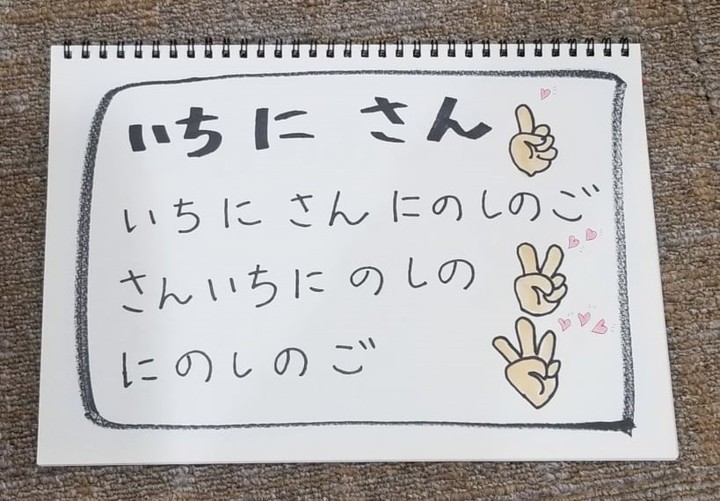 いちに さん
いちに さん にのしのご
さんいちに のしの
にのしの ご